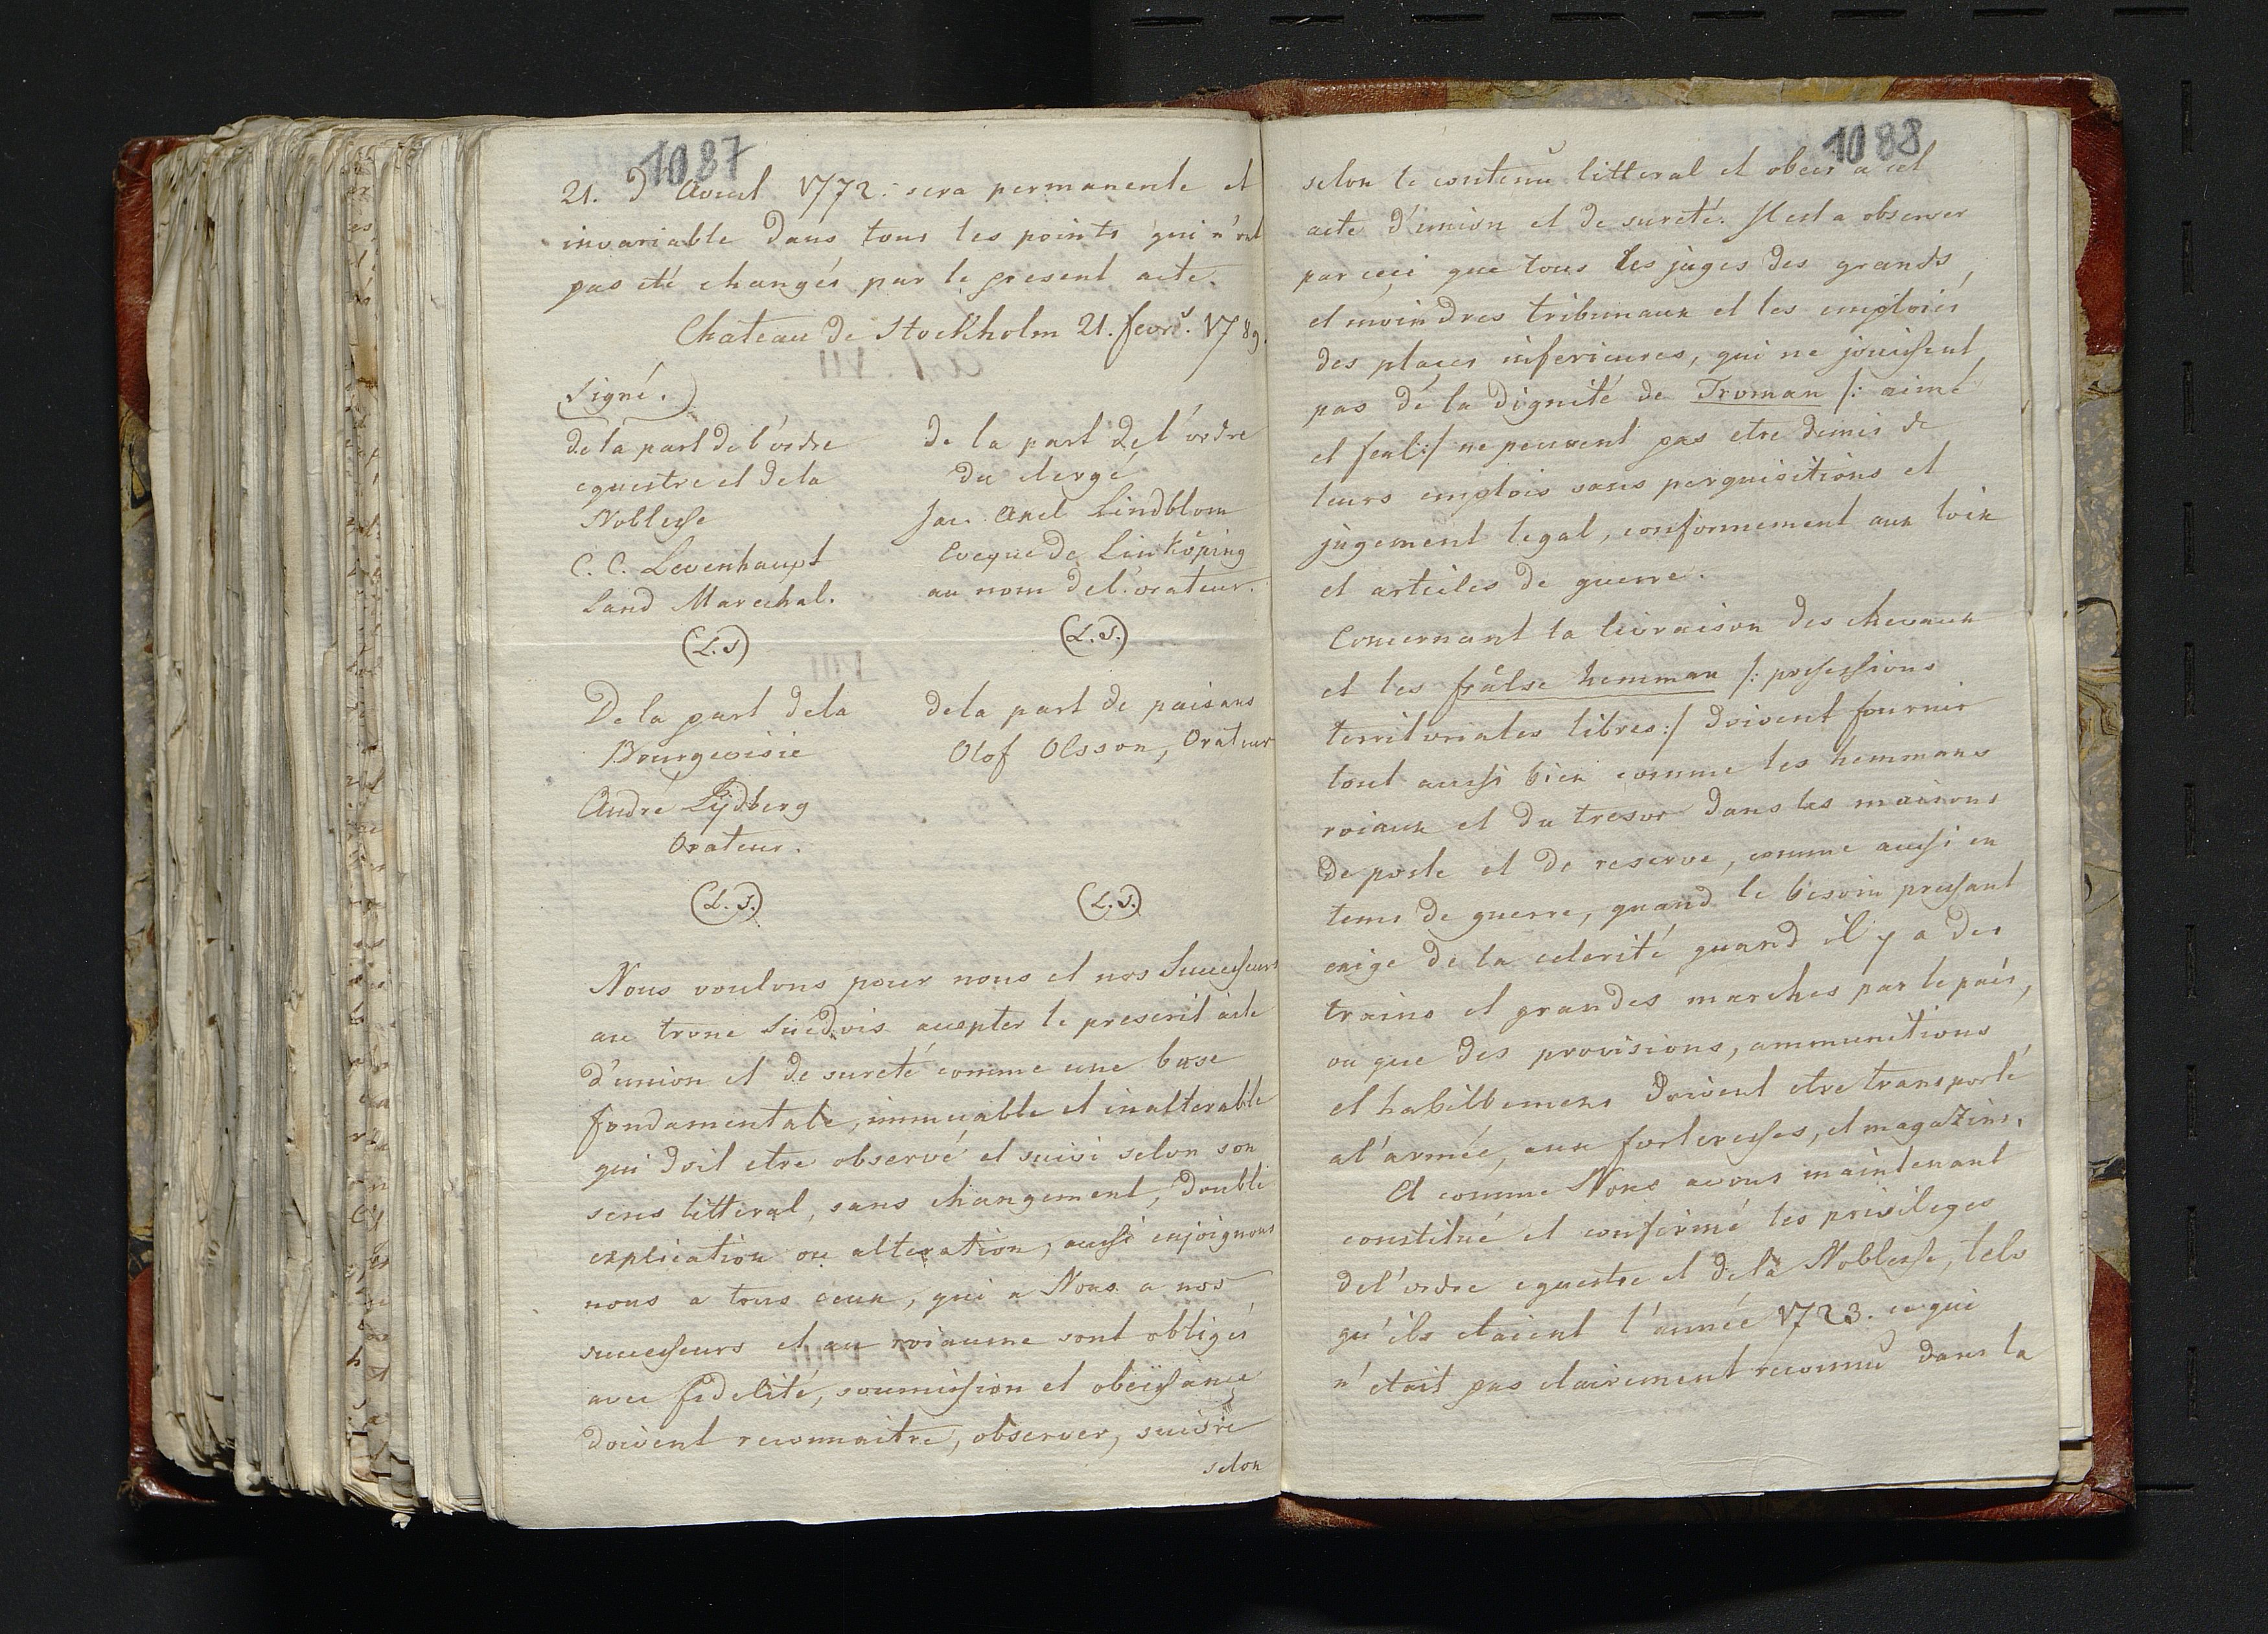 1087
21. d'Aout 1772. sera permanente et
invariable dans tous les points qui n'ont
pas eté changés par le present acte.
Chateau de Stockholm 21. fevrˢ. 1789.
Signé.
de la part de l'ordre
equestre et de la
Noblesse
C. C. Levenhaupt
Land Marechal.
(L. S)
de la part de l'ordre
du clergé
Jac. Axel Lindblom
Eveque de Linköping
au nom de l'orateur.
(L. S.)
De la part de la
Bourgeoisie
André Lydberg
Orateur.
(L. S.)
de la part de paisans
Olof Olsson, Orateur
(L. S.)
Nous voulons pour nous et nos Successeurs
au trone Suedois accepter le prescrit acte
d'union et de sureté comme une base
fondamentale, immuable et inalterable
qui doit etre observé et suivi selon son
sens litteral, sans changement, double
explication ou alteration, aussi enjoignons
nous a tous ceux, qui a Nous a nos
successeurs et au roiaume sont obligés
avec fidelité, soumission et obeïssance
doivent reconnaitre, observer, suivre
selon
1088
selon le contenu litteral et obeir a cet
acte d'union et de sureté. Il est a observer
par ceci que tous les juges des grands
et moindres tribunaux et les emploiés
des places inferieures, qui ne jouissent
pas de la dignité de Troman /: aimé
et feal :/ ne peuvent pas etre demis de
leurs emplois sans perquisitions et
jugement legal, conformement aux loix
et articles de guerre.
Concernant la livraison des chevaux
et les frälse hemman /: possessions
territoriales libres :/ doivent fournir
tout aussi bien comme les hemmans
roiaux et du tresor dans les maisons
de poste et de reserve, comme aussi en
tems de guerre, quand le besoin pressant
exige de la celerité quand il y a des
trains et grandes marches par le païs,
ou que des provisions, ammunitions
et habillemens doivent etre transporté
a l'armée, aux forteresses, et magazins.
Et comme Nous avons maintenant
constitué et confirmé les privileges
de l'ordre equestre et de la Noblesse, tels
qu'ils etaient l'année 1723. ce qui
n'etait pas clairement reconnu dans la